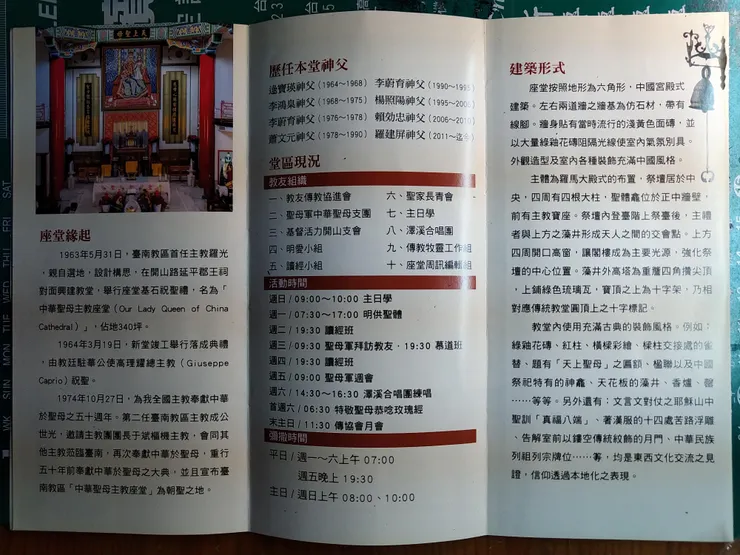 天上聖母
座堂緣起
1963年5月31日，臺南教區首任主教羅光
，親自選地，設計構思，在開山路延平郡王祠
對面興建教堂，舉行座堂基石祝聖禮，名為「
中華聖母主教座堂（Our Lady Queen of China
Cathedral）」，佔地340坪。
1964年3月19日，新堂竣工舉行落成典禮
，由教廷駐華公使高理耀總主教（Giuseppe
Caprio）祝聖。
1974年10月27日，為我全國主教奉獻中華
於聖母之五十週年。第二任臺南教區主教成公
世光，邀請主教團團長于斌樞機主教，會同其
他主教蒞臨臺南，再次奉獻中華於聖母，重行
五十年前奉獻中華於聖母之大典，並且宣布臺
南教區「中華聖母主教座堂」為朝聖之地。
歷任本堂神父
邊寶瑛神父（1964～1968）李蔚育神父（1990～1995）
李鴻臬神父（1968～1975）楊照陽神父（1995～200
李蔚育神父（1976～1978）賴効忠神父（2006～2010）
蕭文元神父（1978～1990）羅建屏神父（2011～迄今）
堂區現況
教友組織
一、教友傳教協進會　六、聖家長青會
二、聖母軍中華聖母支團　七、主日學
三、基督活力開山支會　八、澤溪合唱團
四、明愛小組　九、傳教牧靈工作組
五、讀經小組　十、座堂周訊編輯組
活動時間
週日 / 09:00～10:00 主日學
週一 / 07:30～17:00 明供聖體
週二 / 19:30 讀經班
週三 / 09:30 聖母軍拜訪教友，19:30 慕道班
週四 / 19:30 讀經班
週五 / 09:00 聖母軍週會
週六 / 14:30～16:30 澤溪合唱團練唱
首週六 / 06:30 特敬聖母恭唸玫瑰經
末主日 / 11:30 傳協會月會
彌撒時間
平日 / 週一～六上午 07:00
週五晚上 19:30
主日 / 週日上午 08:00、10:00
建築形式
座堂按照地形為六角形，中國宮殿式
建築。左右兩道牆之牆基為仿石材，帶有
線腳。牆身貼有當時流行的淺黃色面磚，並
以大量綠釉花磚阻隔光線使室內氣氛別具。
外觀造型及室內各種裝飾充滿中國風格。
主體為羅馬大殿式的布置，祭壇居於中
央，四周有四根大柱，聖體龕位於正中牆壁，
前有主教寶座。祭壇內登臺階上祭臺後，主禮
者與上方之藻井形成天人之間的交會點。上方
四周開口高窗，讓閣樓成為主要光源，強化祭
壇的中心位置。藻井外高塔為重簷四角攢尖頂
，上鋪綠色琉璃瓦，寶頂之上為十字架，乃相
對應傳統教堂圓頂上之十字標記。
教堂內使用充滿古典的裝飾風格。例如：
綠釉花磚、紅柱、橫樑彩繪、樑柱交接處的雀
替、題有「天上聖母」之匾額、楹聯以及中國
祭祀特有的神龕、天花板的藻井、香爐、罄
……等等。另外還有：文言文對仗之耶穌山中
聖訓「真福八端」、著漢服的十四處苦路浮雕
、告解室前以鏤空傳統紋飾的月門、中華民族
列祖列宗牌位……等，均是東西文化交流之見
證，信仰透過本地化之表現。
WK SUN MON TUE WED THU FRI SAT